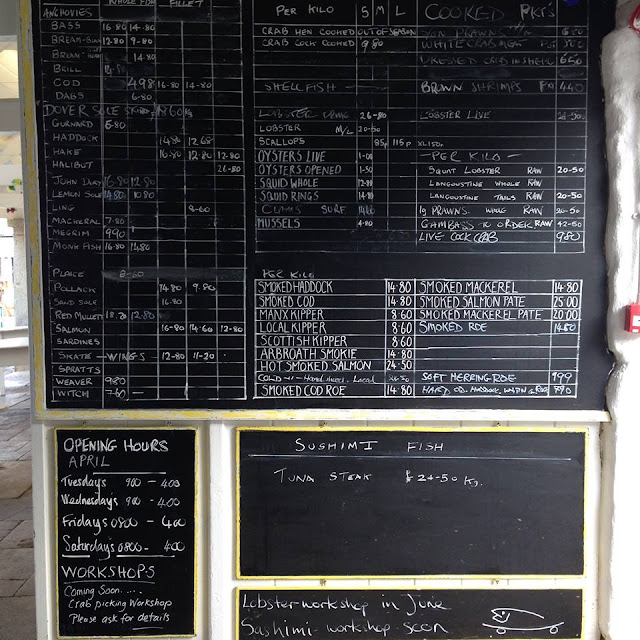 WHOLE FISH FILLET
ANCHOVIES
BASS 16-80 14-80
BREAM- 12-80 9-80
BREAM 14-80
BRILL 14-80
COD 498 16-80 14-80
DABS 6-80
DOVER SOLE
GURNARD 6-80
HADDOCK 14-80 12-68
HAKE 16-80 12-80 12-80
HALIBUT 26-80
JOHN DORY 16-80 12-80
LEMON SOLE 14-80 10-80
LING 9-60
MACKERAL 7-80
MEGRIM 990
MONK FISH 16-80 14-80
PLAICE 8-60
POLLACK 14-80 9-80
SAND SOLE 16-80
RED MULLET 18-20 12-80
SALMON 16-80 14-60 12-80
SARDINES
SKATE - WINGS - 12-80 11-20
SPRATTS
WEAVER 980
WITCH 7-60
PER KILO S M L
CRAB HEN COOKED OUT OF SEASON
CRAB COCK COOKED 980
SHELLFISH
LOBSTER 26-80
LOBSTER M/L 20-50
SCALLOPS 85p 115p
OYSTERS LIVE 1-00
OYSTERS OPENED 1-50
SQUID WHOLE 12-80
SQUID RINGS 14-80
CLAMS SURF
MUSSELS 4-80
COOKED PKT'S
WHITE CRABMEAT
DRESSED CRAB IN SHELL 650
BROWN SHRIMPS 440
LOBSTER LIVE
- PER KILO -
SQUAT LOBSTER RAW 20-50
LANGOUSTINE WHOLE RAW
LANGOUSTINE TAILS RAW 20-50
lg PRAWNS WHOLE RAW 20-50
GAMBASS TO ORDER RAW 42-50
LIVE COCK CRAB 980
PER KILO
SMOKED HADDOCK 14-80
SMOKED COD 14-80
MANX KIPPER 8-60
LOCAL KIPPER 8-60
SCOTTISH KIPPER 8-60
ARBROATH SMOKIE 14-80
HOT SMOKED SALMON 24-50
COLD Local
SMOKED COD ROE 14-80
SMOKED MACKEREL 14-80
SMOKED SALMON PATE 25-00
SMOKED MACKEREL PATE 20-00
SMOKED ROE 14-50
SOFT HERRING ROE 999
OPENING HOURS
APRIL
Tuesdays 900 - 400
Wednesdays 900 - 4.00
Fridays 0800 - 400
Saturdays 0800 - 400
WORKSHOPS
Coming Soon....
Crab picking Workshop
Please ask for details
SUSHIMI FISH
TUNA STEAK £24-50 Kg.
Lobster workshop in June
Sashimi - workshop soon